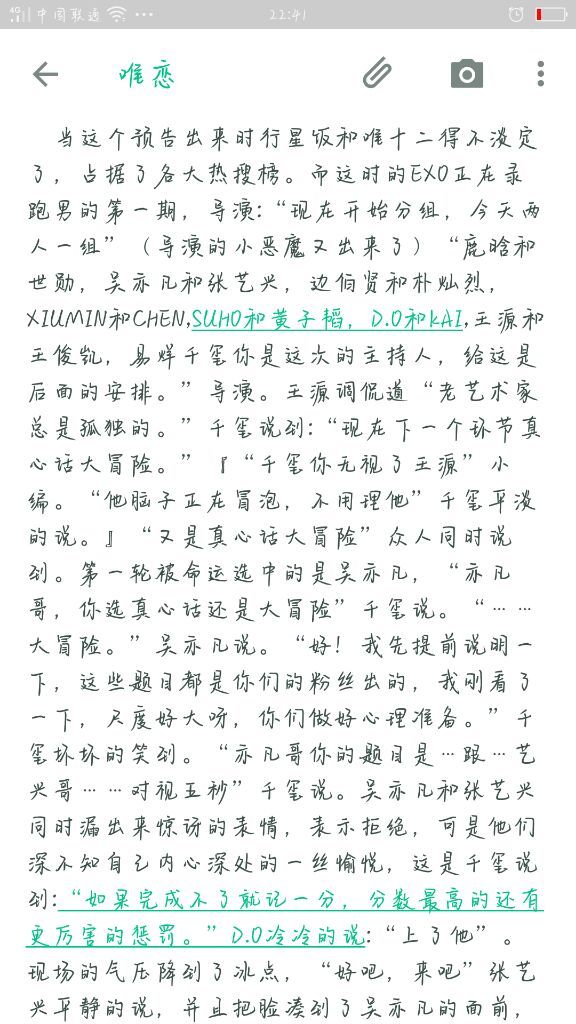 4G 中国联通 22:41
唯恋
当这个预告出来时行星饭和唯十二得不淡定
了，占据了各大热搜榜。而这时的EXO正在录
跑男的第一期，导演:“现在开始分组，今天两
人一组”（导演的小恶魔又出来了）“鹿晗和
世勋，吴亦凡和张艺兴，边伯贤和朴灿烈，
XIUMIN和CHEN,SUHO和黄子韬，D.O和KAI,王源和
王俊凯，易烊千玺你是这次的主持人，给这是
后面的安排。”导演。王源调侃道“老艺术家
总是孤独的。”千玺说到:“现在下一个环节真
心话大冒险。”『“千玺你无视了王源”小
编。“他脑子正在冒泡，不用理他”千玺平淡
的说。』“又是真心话大冒险”众人同时说
到。第一轮被命运选中的是吴亦凡，“亦凡
哥，你选真心话还是大冒险”千玺说。“……
大冒险。”吴亦凡说。“好！我先提前说明一
下，这些题目都是你们的粉丝出的，我刚看了
一下，尺度好大呀，你们做好心理准备。”千
玺坏坏的笑到。“亦凡哥你的题目是…跟…艺
兴哥……对视五秒”千玺说。吴亦凡和张艺兴
同时漏出来惊讶的表情，表示拒绝，可是他们
深不知自己内心深处的一丝愉悦，这是千玺说
到:“如果完成不了就记一分，分数最高的还有
更厉害的惩罚。”D.O冷冷的说:“上了他”。
现场的气压降到了冰点，“好吧，来吧”张艺
兴平静的说，并且把脸凑到了吴亦凡的面前，